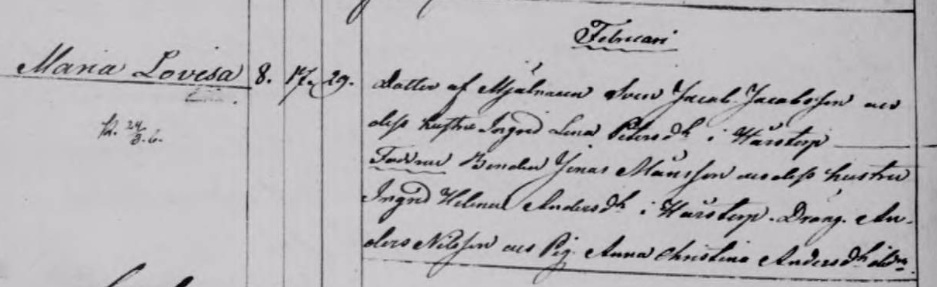 Februari
Maria Lovisa 8. 17. 29. dotter af Mjölnaren Sven Jacob Jacobsson och
dess hustru Ingrid Lena Petersdr i Hårstorp
Faddrar Bonden Jonas Månsson och dess hustru
Ingrid Helena Andersdr i Hårstorp. Dräng. An-
ders Nilsson och Pig. Anna Christina Andersdr